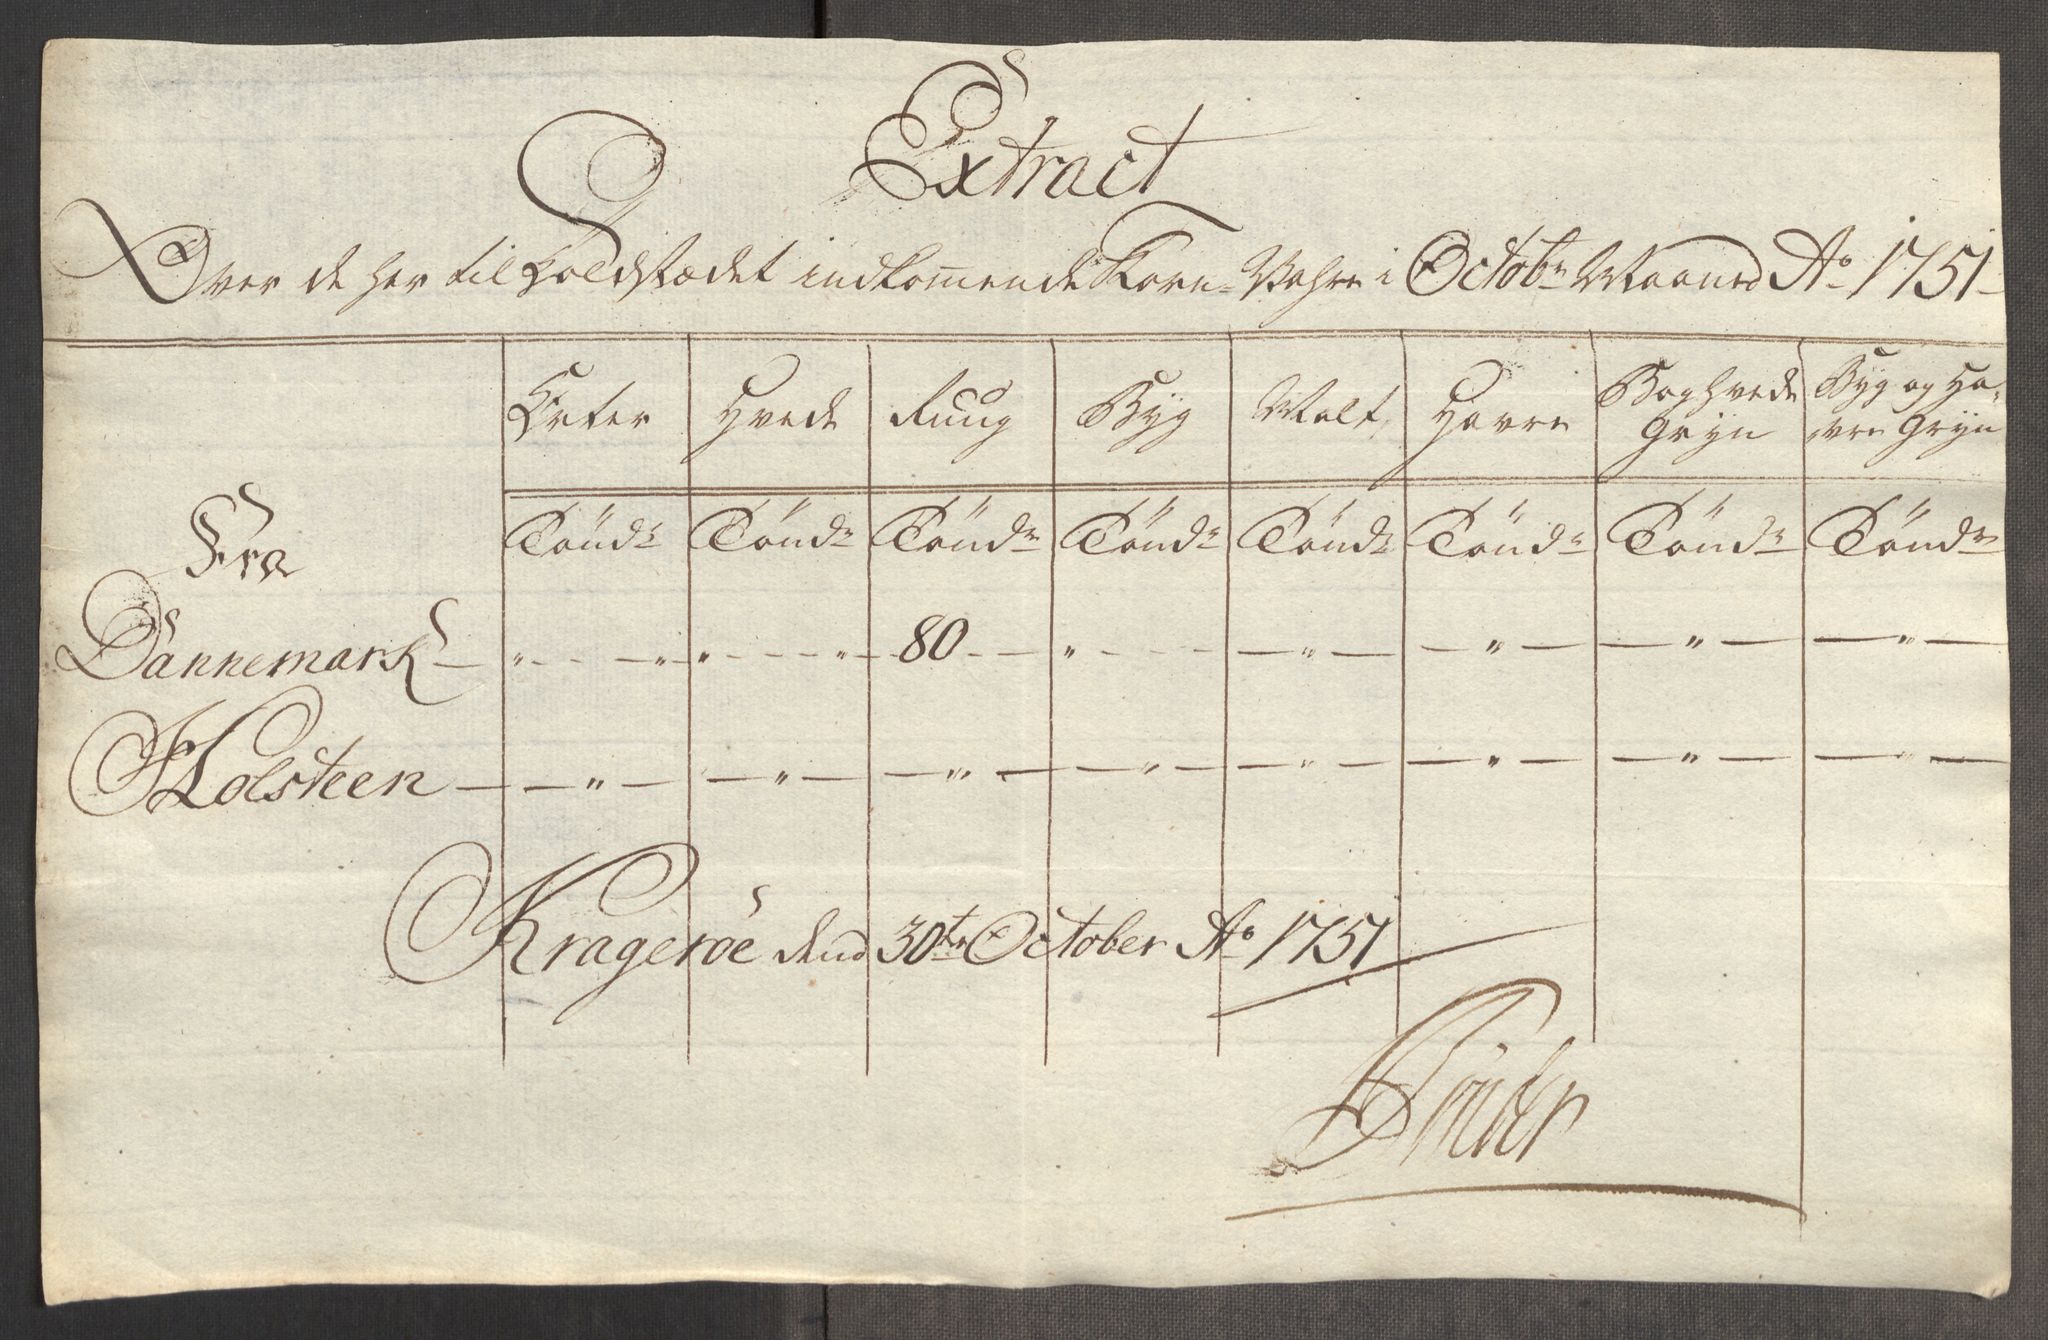 Extract
Over de her til Toldstædet indkommende Korn-Vahre i Octobr Maaned Ao 1751
Erter Hvede Ruug Byg Malt Havre Boghvede Gryn Byg og Ha-vre Gryn
Fra Tönd: Tönd: Tönd: Tönd: Tönd: Tönd: Tönd: Tönd:
Dännemark — " — " " — " 80 — " — — " — — " — — " — — " —
Holsteen — " — — " — — " — — " — — " — — " — — " — — " —
Krageröe dend 30te October Ao 1751